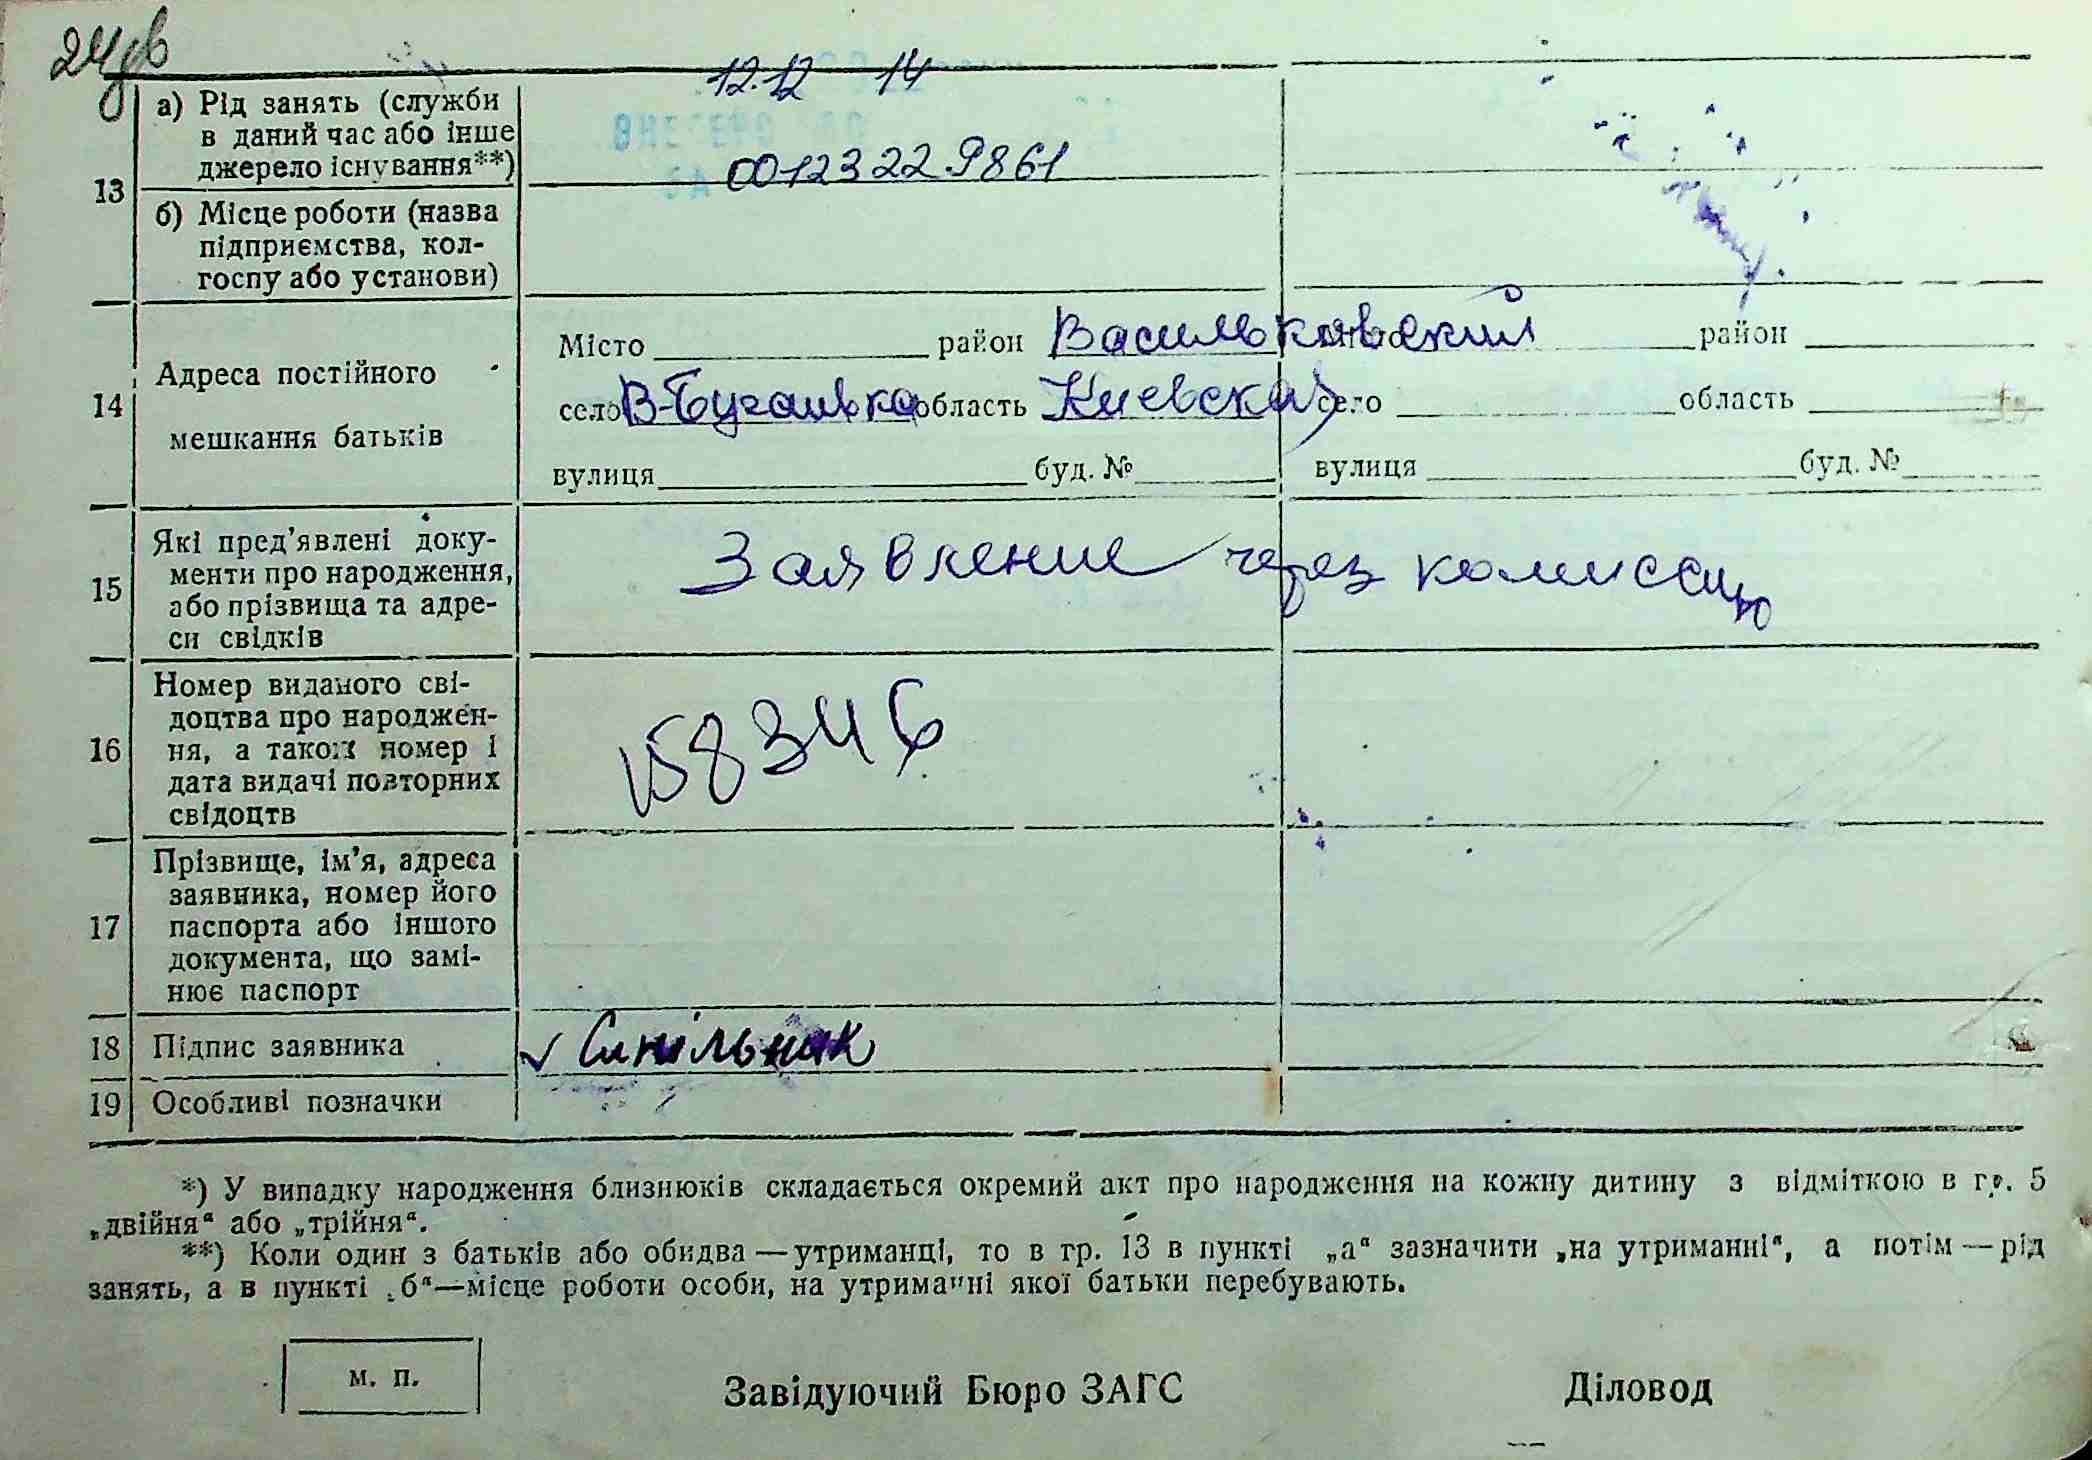 12.12 14
13
а) Рід занять (служби
в даний час або інше
джерело існування**)
00123229861
б) Місце роботи (назва
підприємства, кол-
госпу або установи)
14
Адреса постійного
мешкання батьків
Місто район Васильковский район
село В-Бугаивка область Киевская село область
вулиця буд. № вулиця буд. №
15
Які пред’явлені доку-
менти про народження,
або прізвища та адре-
си свідків
Заявление через комиссию
16
Номер виданого сві-
доцтва про народжен-
ня, а також номер і
дата видачі повторних
свідоцтв
158346
17
Прізвище, ім’я, адреса
заявника, номер його
паспорта або іншого
документа, що замі-
нює паспорт
18 Підпис заявника
Синільник
19 Особливі позначки
*) У випадку народження близнюків складається окремий акт про народження на кожну дитину з відміткою в гр. 5
„двійня“ або „трійня“.
**) Коли один з батьків або обидва — утриманці, то в гр. 13 в пункті „а“ зазначити „на утриманні“, а потім — рід
занять, а в пункті „б“—місце роботи особи, на утриманні якої батьки перебувають.
м. п.
Завідуючий Бюро ЗАГС
Діловод